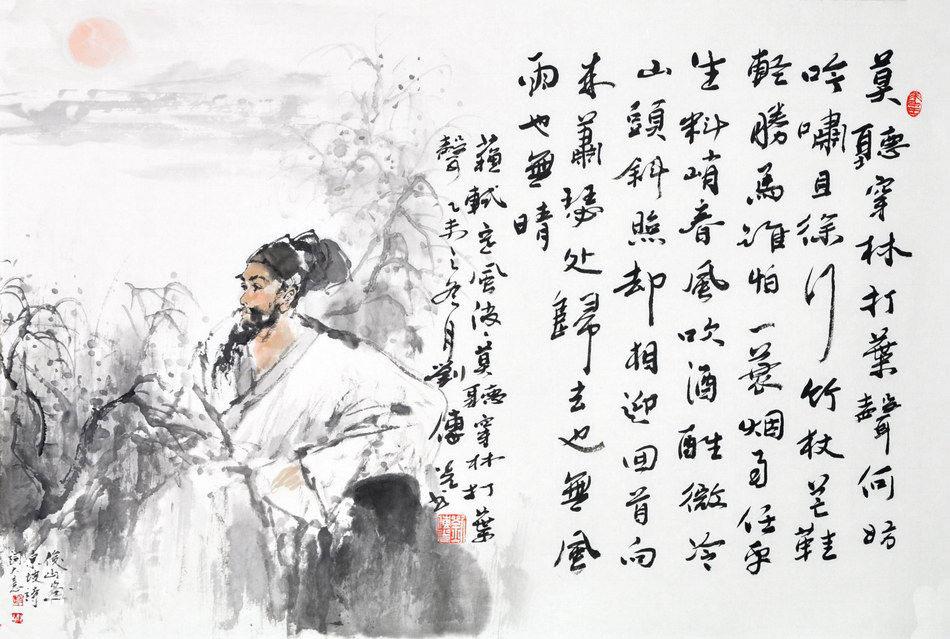 莫聽穿林打葉聲何妨
吟嘯且徐行竹杖芒鞋
輕勝馬誰怕一蓑烟雨任平
生料峭春風吹酒醒微冷
山頭斜照却相迎回首向
来蕭瑟处歸去也無風
雨也無晴
蘇軾定風波、莫聽穿林打葉
聲乙未之冬月劉傳
俊山寫
東坡詩
詞大意